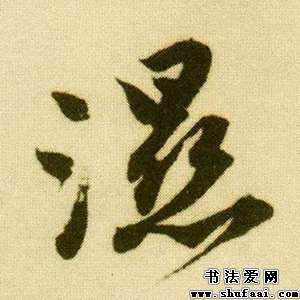 湿
书法爱网
www.shufaai.com